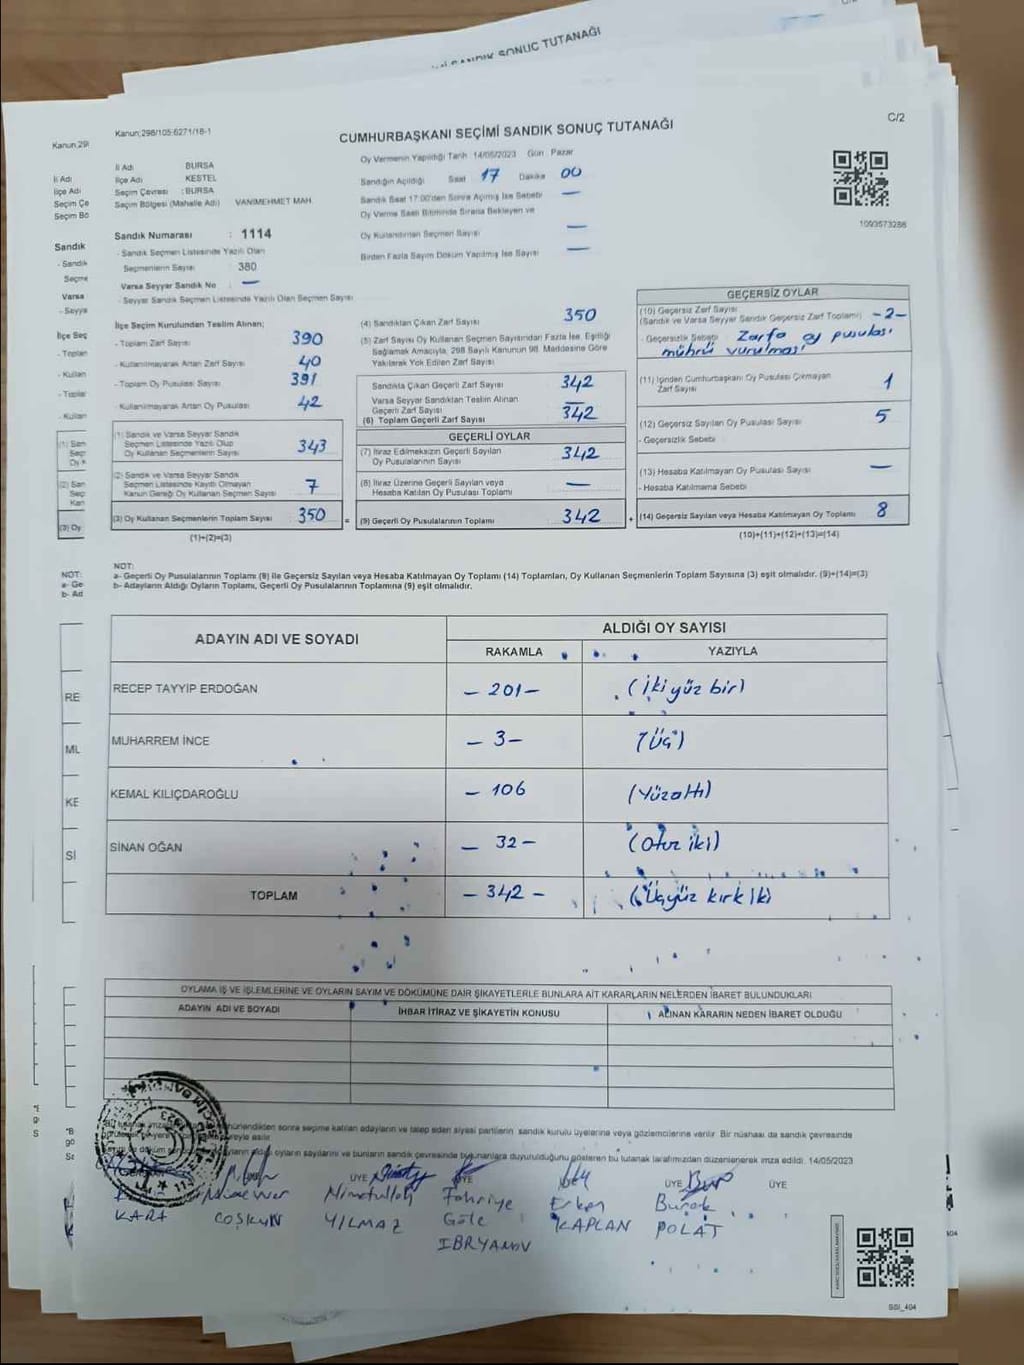 Mİ SANDIK SONUÇ TUTANAĞI
C/2
Kanun:298/105:6271/18-1
CUMHURBAŞKANI SEÇİMİ SANDIK SONUÇ TUTANAĞI
İl Adı BURSA
İlçe Adı KESTEL
Seçim Çevresi : BURSA
Seçim Bölgesi (Mahalle Adı) VANİMEHMET MAH.
Oy Vermenin Yapıldığı Tarih 14/05/2023 Gün Pazar
Sandığın Açıldığı Saat 17 Dakika 00
Sandık Saat 17:00'den Sonra Açılmış İse Sebebi —
Oy Verme Saati Bitiminde Sırada Bekleyen ve
Oy Kullandırılan Seçmen Sayısı —
Birden Fazla Sayım Döküm Yapılmış İse Sayısı —
1093573286
Sandık Numarası : 1114
- Sandık Seçmen Listesinde Yazılı Olan
Seçmenlerin Sayısı 380
Varsa Seyyar Sandık No —
- Seyyar Sandık Seçmen Listesinde Yazılı Olan Seçmen Sayısı
İlçe Seçim Kurulundan Teslim Alınan;
- Toplam Zarf Sayısı 390
- Kullanılmayarak Artan Zarf Sayısı 40
- Toplam Oy Pusulası Sayısı 391
- Kullanılmayarak Artan Oy Pusulası 42
(1) Sandık ve Varsa Seyyar Sandık
Seçmen Listesinde Yazılı Olup
Oy Kullanan Seçmenlerin Sayısı 343
(2) Sandık ve Varsa Seyyar Sandık
Seçmen Listesinde Kayıtlı Olmayan
Kanun Gereği Oy Kullanan Seçmen Sayısı 7
(3) Oy Kullanan Seçmenlerin Toplam Sayısı 350
(1)+(2)=(3)
(4) Sandıktan Çıkan Zarf Sayısı 350
(5) Zarf Sayısı Oy Kullanan Seçmen Sayısından Fazla İse, Eşitliği
Sağlamak Amacıyla, 298 Sayılı Kanunun 98. Maddesine Göre
Yakılarak Yok Edilen Zarf Sayısı
Sandıkta Çıkan Geçerli Zarf Sayısı 342
Varsa Seyyar Sandıktan Teslim Alınan
Geçerli Zarf Sayısı —
(6) Toplam Geçerli Zarf Sayısı 342
GEÇERLİ OYLAR
(7) İtiraz Edilmeksizin Geçerli Sayılan
Oy Pusulalarının Sayısı 342
(8) İtiraz Üzerine Geçerli Sayılan veya
Hesaba Katılan Oy Pusulası Toplamı —
(9) Geçerli Oy Pusulalarının Toplamı 342
GEÇERSİZ OYLAR
(10) Geçersiz Zarf Sayısı
(Sandık ve Varsa Seyyar Sandık Geçersiz Zarf Toplamı) -2-
- Geçersizlik Sebebi Zarfa oy pusulası
mührü vurulması
(11) İçinden Cumhurbaşkanı Oy Pusulası Çıkmayan
Zarf Sayısı 1
(12) Geçersiz Sayılan Oy Pusulası Sayısı 5
- Geçersizlik Sebebi
(13) Hesaba Katılmayan Oy Pusulası Sayısı —
- Hesaba Katılmama Sebebi
(14) Geçersiz Sayılan veya Hesaba Katılmayan Oy Toplamı 8
(10)+(11)+(12)+(13)=(14)
NOT:
a- Geçerli Oy Pusulalarının Toplamı (9) ile Geçersiz Sayılan veya Hesaba Katılmayan Oy Toplamı (14) Toplamları, Oy Kullanan Seçmenlerin Toplam Sayısına (3) eşit olmalıdır. (9)+(14)=(3)
b- Adayların Aldığı Oyların Toplamı, Geçerli Oy Pusulalarının Toplamına (9) eşit olmalıdır.
ADAYIN ADI VE SOYADI ALDIĞI OY SAYISI
RAKAMLA YAZIYLA
RECEP TAYYİP ERDOĞAN - 201 - (İki yüz bir)
MUHARREM İNCE - 3 - (Üç)
KEMAL KILIÇDAROĞLU - 106 (Yüzaltı)
SİNAN OĞAN - 32 - (Otuz iki)
TOPLAM - 342 - (Üçyüz kırk iki
OYLAMA İŞ VE İŞLEMLERİNE VE OYLARIN SAYIM VE DÖKÜMÜNE DAİR ŞİKAYETLERLE BUNLARA AİT KARARLARIN NELERDEN İBARET BULUNDUKLARI
ADAYIN ADI VE SOYADI İHBAR İTİRAZ VE ŞİKAYETİN KONUSU ALINAN KARARIN NEDEN İBARET OLDUĞU
sonra seçime katılan adayların ve talep eden siyasi partilerin sandık kurulu üyelerine veya gözlemcilerine verilir. Bir nüshası da sandık çevresinde
oyların sayılarını ve bunların sandık çevresinde bulunanlara duyurulduğunu gösteren bu tutanak tarafımızdan düzenlenerek imza edildi. 14/05/2023
ÜYE ÜYE ÜYE ÜYE
Nimetullah Fahriye Erkan Burak
KARA COŞKUN YILMAZ Güle KAPLAN POLAT
IBRYANOV
SSI_404